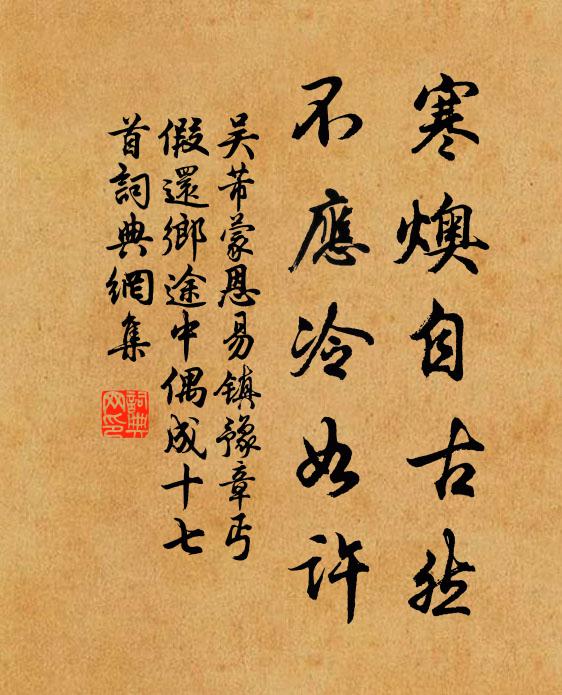 寒燠自古然
不應冷如許
吴芾蒙恩易鎮豫章丐
假還鄉途中偶成十七
首詞典網集
詞典
网印